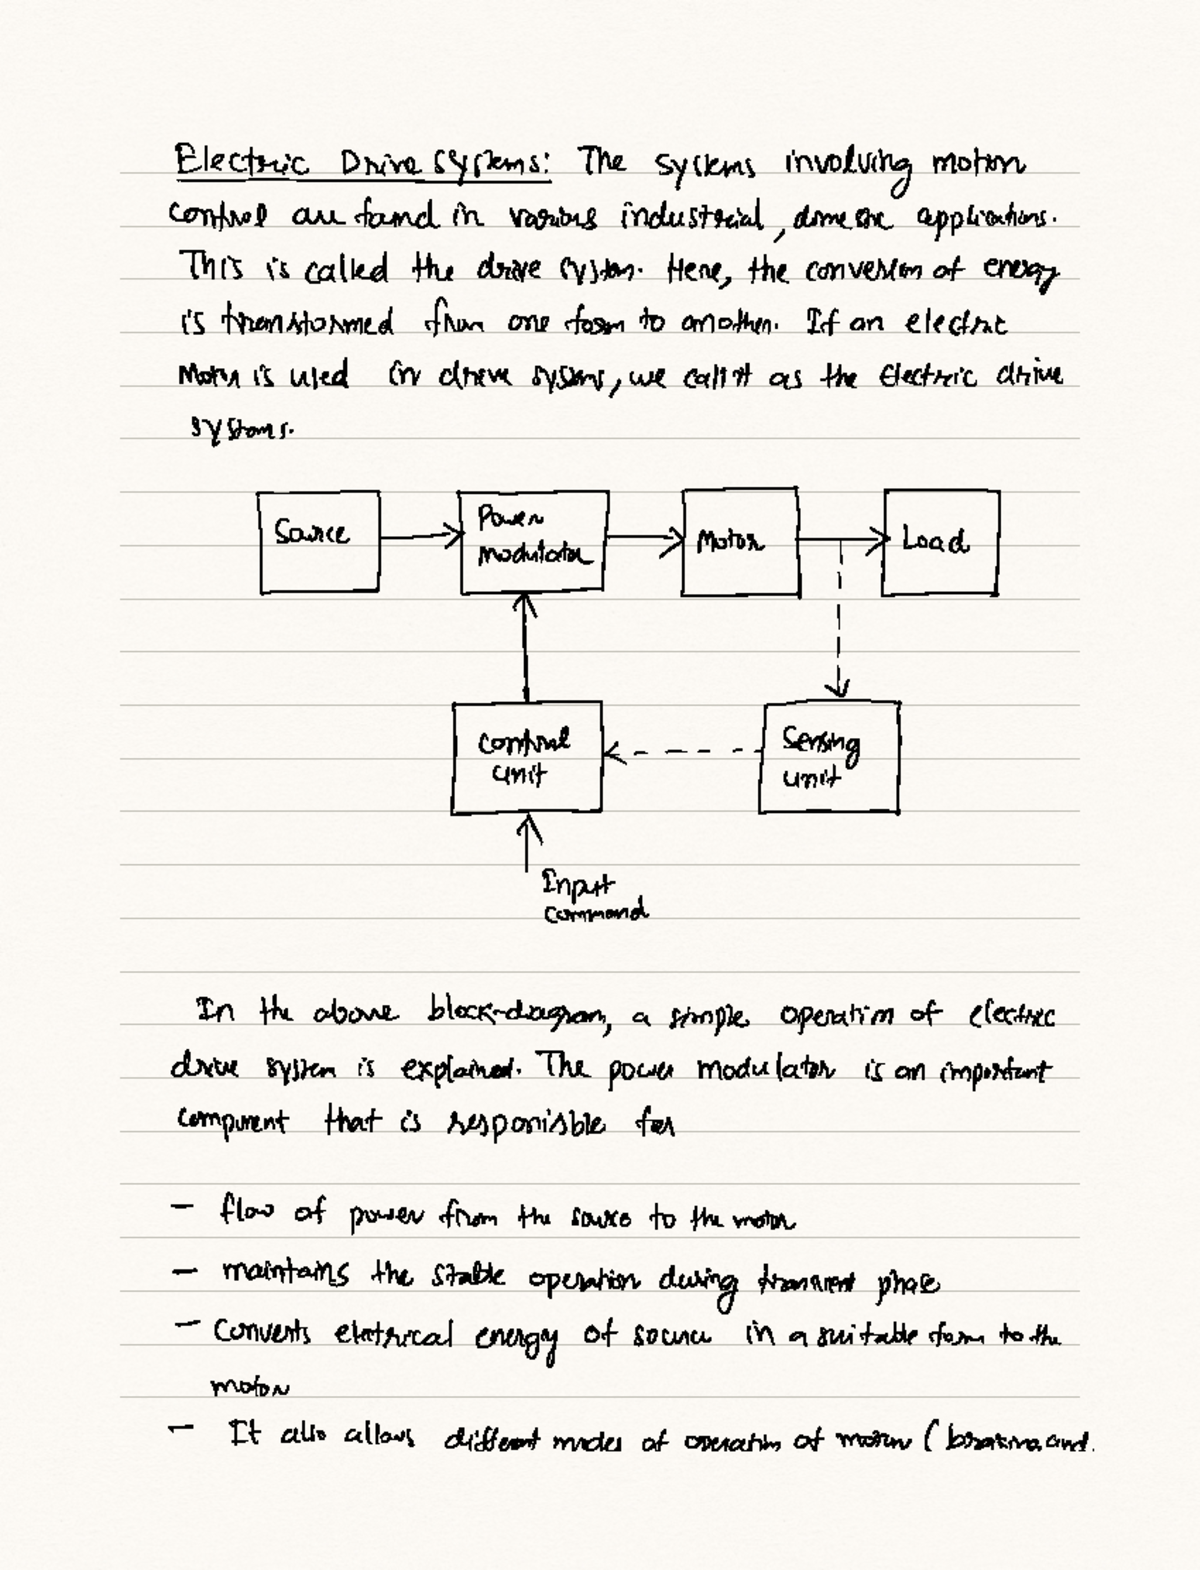 Electric Drive Systems: The systems involving motion
control are found in various industrial, domestic applications.
This is called the drive system. Here, the conversion of energy
is transformed from one form to another. If an electric
Motor is used in drive systems, we call it as the Electric drive
systems.
Source
Power
modulator
Motor
Load
Control
unit
Sensing
unit
Input
command
In the above block-diagram, a simple operation of electric
drive system is explained. The power modulator is an important
component that is responisble for
– flow of power from the source to the motor
– maintains the stable operation during transient phase
– Converts eletrical energy of source in a suitable form to the
motor
– It also allows different modes of operation of motor ( braking and.